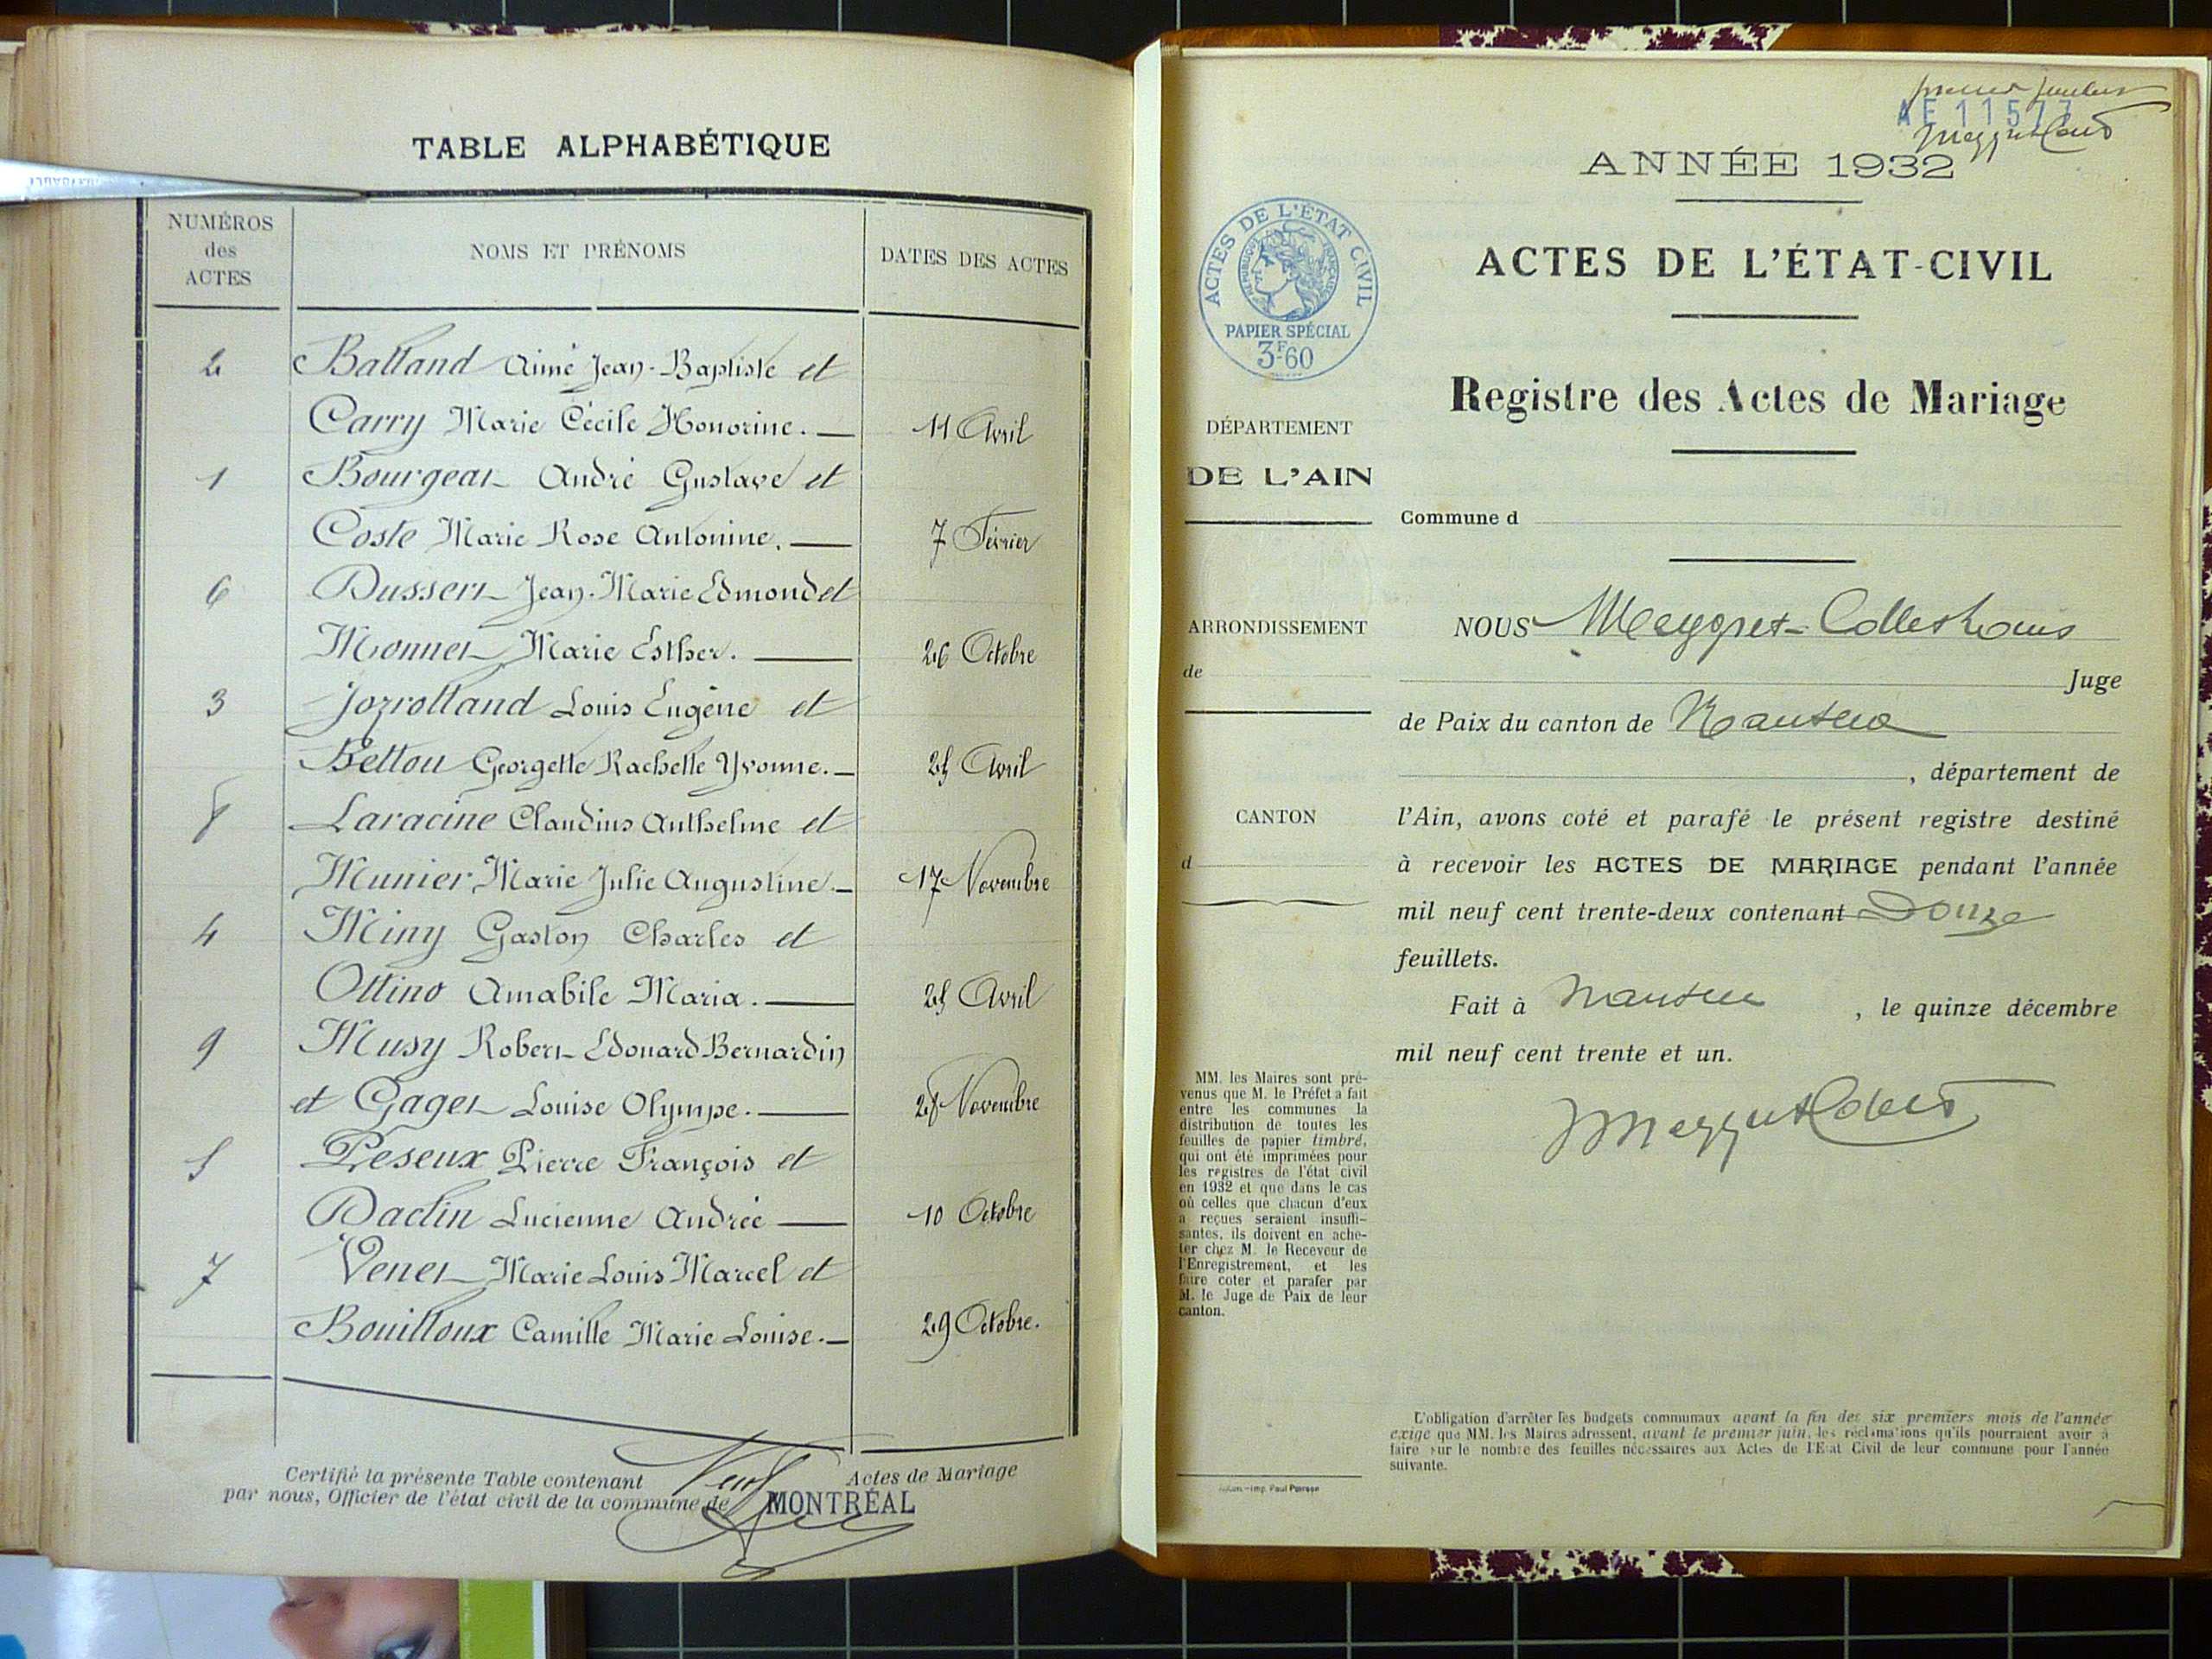 TABLE ALPHABÉTIQUE
NUMÉROS
des
ACTES
NOMS ET PRÉNOMS
DATES DES ACTES
2 Balland Aimé Jean-Baptiste et
Carry Marie Cécile Honorine. — 11 Avril
1 Bourgeat André Gustave et
Coste Marie Rose Antonine. — 7 Février
6 Dussert Jean-Marie Edmond et
Monnet Marie Esther. — 26 Octobre
3 Jozrolland Louis Eugène et
Bellou Georgette Rachelle Yvonne. — 25 Avril
8 Laracine Claudius Anthelme et
Munier Marie Julie Augustine. — 17 Novembre
4 Miny Gaston Charles et
Ottino Amabile Maria. — 25 Avril
9 Musy Robert Edouard Bernardin
et Gaget Louise Olympe. — 28 Novembre
5 Péseux Pierre François et
Daclin Lucienne Andrée — 10 Octobre
7 Venet Marie Louis Marcel et
Bouilloux Camille Marie Louise. — 29 Octobre.
Certifié la présente Table contenant Neuf Actes de Mariage
par nous, Officier de l'état civil de la commune de MONTRÉAL
premier feuillet
AE 11577
ANNÉE 1932
ACTES DE L'ÉTAT-CIVIL
Registre des Actes de Mariage
ACTES DE L'ÉTAT CIVIL
RÉPUBLIQUE FRANÇAISE
PAPIER SPÉCIAL
3F60
DÉPARTEMENT
DE L'AIN
ARRONDISSEMENT
de
CANTON
d
Commune d
NOUS Meygret-Collet Louis
Juge
de Paix du canton de Nantua
, département de
l'Ain, avons coté et parafé le présent registre destiné
à recevoir les ACTES DE MARIAGE pendant l'année
mil neuf cent trente-deux contenant Douze
feuillets.
Fait à Nantua , le quinze décembre
mil neuf cent trente et un.
MM. les Maires sont pré-
venus que M. le Préfet a fait
entre les communes la
distribution de toutes les
feuilles de papier timbré,
qui ont été imprimées pour
les registres de l'état civil
en 1932 et que dans le cas
où celles que chacun d'eux
a reçues seraient insuffi-
santes, ils doivent en ache-
ter chez M. le Receveur de
l'Enregistrement, et les
faire coter et parafer par
M. le Juge de Paix de leur
canton.
L'obligation d'arrêter les budgets communaux avant la fin des six premiers mois de l'année
exige que MM. les Maires adressent, avant le premier juin, les réclamations qu'ils pourraient avoir à
faire sur le nombre des feuilles nécessaires aux Actes de l'Etat Civil de leur commune pour l'année
suivante.
Imp. Paul